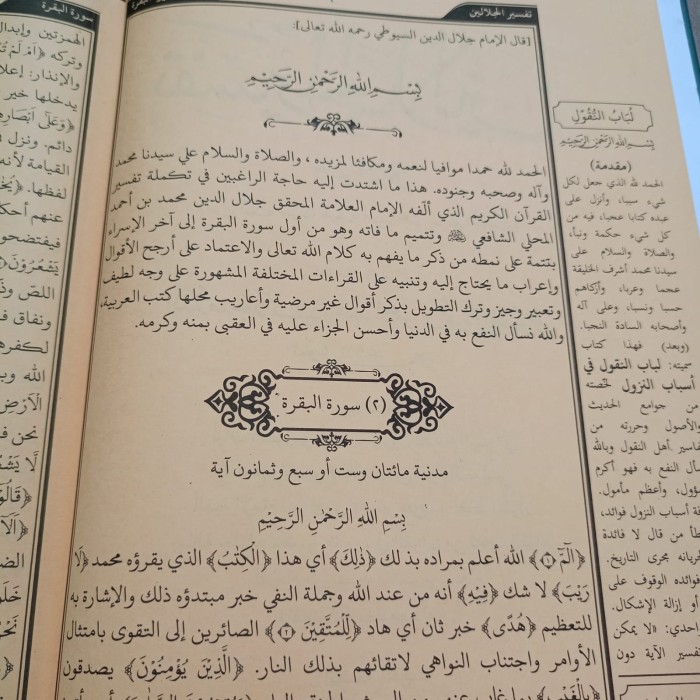 تفسير الجلالين
سورة البقرة
[قال الإمام جلال الدين السيوطي رحمه الله تعالى]:
بِسْمِ اللهِ الرَّحْمٰنِ الرَّحِيْمِ
الحمد لله حمدا موافيا لنعمه ومكافئا لمزيده، والصلاة والسلام علي سيدنا محمد
وآله وصحبه وجنوده. هذا ما اشتدت إليه حاجة الراغبين في تكملة تفسير
القرآن الكريم الذي ألّفه الإمام العلامة المحقق جلال الدين محمد بن أحمد
المحلي الشافعي ﷺ وتتميم ما فاته وهو من أول سورة البقرة إلى آخر الإسراء
بتتمة على نمطه من ذكر ما يفهم به كلام الله تعالى والاعتماد على أرجح الأقوال
وإعراب ما يحتاج إليه وتنبيه على القراءات المختلفة المشهورة على وجه لطيف
وتعبير وجيز وترك التطويل بذكر أقوال غير مرضية وأعاريب محلها كتب العربية،
والله نسأل النفع به في الدنيا وأحسن الجزاء عليه في العقبى بمنه وكرمه.
(٢) سورة البقرة
مدنية مائتان وست أو سبع وثمانون آية
بِسْمِ اللهِ الرَّحْمٰنِ الرَّحِيْمِ
﴿الٓمّٓ ۝١﴾ الله أعلم بمراده بذ لك ﴿ذٰلِكَ﴾ أي هذا ﴿الْكِتٰبُ﴾ الذي يقرؤه محمد ﴿لَا
رَيْبَ﴾ لا شك ﴿فِيْهِ﴾ أنه من عند الله وجملة النفي خبر مبتدؤه ذلك والإشارة به
للتعظيم ﴿هُدًى﴾ خبر ثان أي هاد ﴿لِّلْمُتَّقِيْنَ ۝٢﴾ الصائرين إلى التقوى بامتثال
الأوامر واجتناب النواهي لاتقائهم بذلك النار. ﴿الَّذِيْنَ يُؤْمِنُوْنَ﴾ يصدقون
﴿بِالْغَيْبِ﴾
لُبَابُ النُّقُوْلِ
بِسْمِ اللهِ الرَّحْمٰنِ الرَّحِيْمِ
(مقدمة)
الحمد لله الذي جعل لكل
شيء سببا، وأنزل على
عبده كتابا عجبا، فيه من
كل شيء حكمة ونبأ،
والصلاة والسلام على
سيدنا محمد أشرف الخليقة
عجما وعربا، وأزكاهم
حسبا ونسبا، وعلى آله
وأصحابه السادة النجبا.
(وبعد) فهذا كتاب
سميته: لباب النقول في
أسباب النزول لخصته
من جوامع الحديث
والأصول وحررته من
تفاسير أهل النقول وبالله
أسأل النفع به فهو أكرم
مسؤول، وأعظم مأمول.
أسباب النزول فوائد،
من قال لا فائدة
لجريانه مجرى التاريخ.
فوائده الوقوف على
أو إزالة الإشكال.
الواحدي: «لا يمكن
تفسير الآية دون
سورة البقرة
الهمزتين وإبدال
وتركه ﴿أَمْ لَمْ
والإنذار: إعلا
يدخلها خير
﴿وَعَلٰى أَبْصَارِهِ
دائم. ونزل في
القيامة لأنه
لفظها.
عنهم أحكا
فيفتضحو
يَشْعُرُوْنَ﴾
اللص وذ
ونفاق ف
لكفره
الله وب
الْاَرْضِ
نحن ف
لَّا يَشْعُ
﴿قَالُوْ